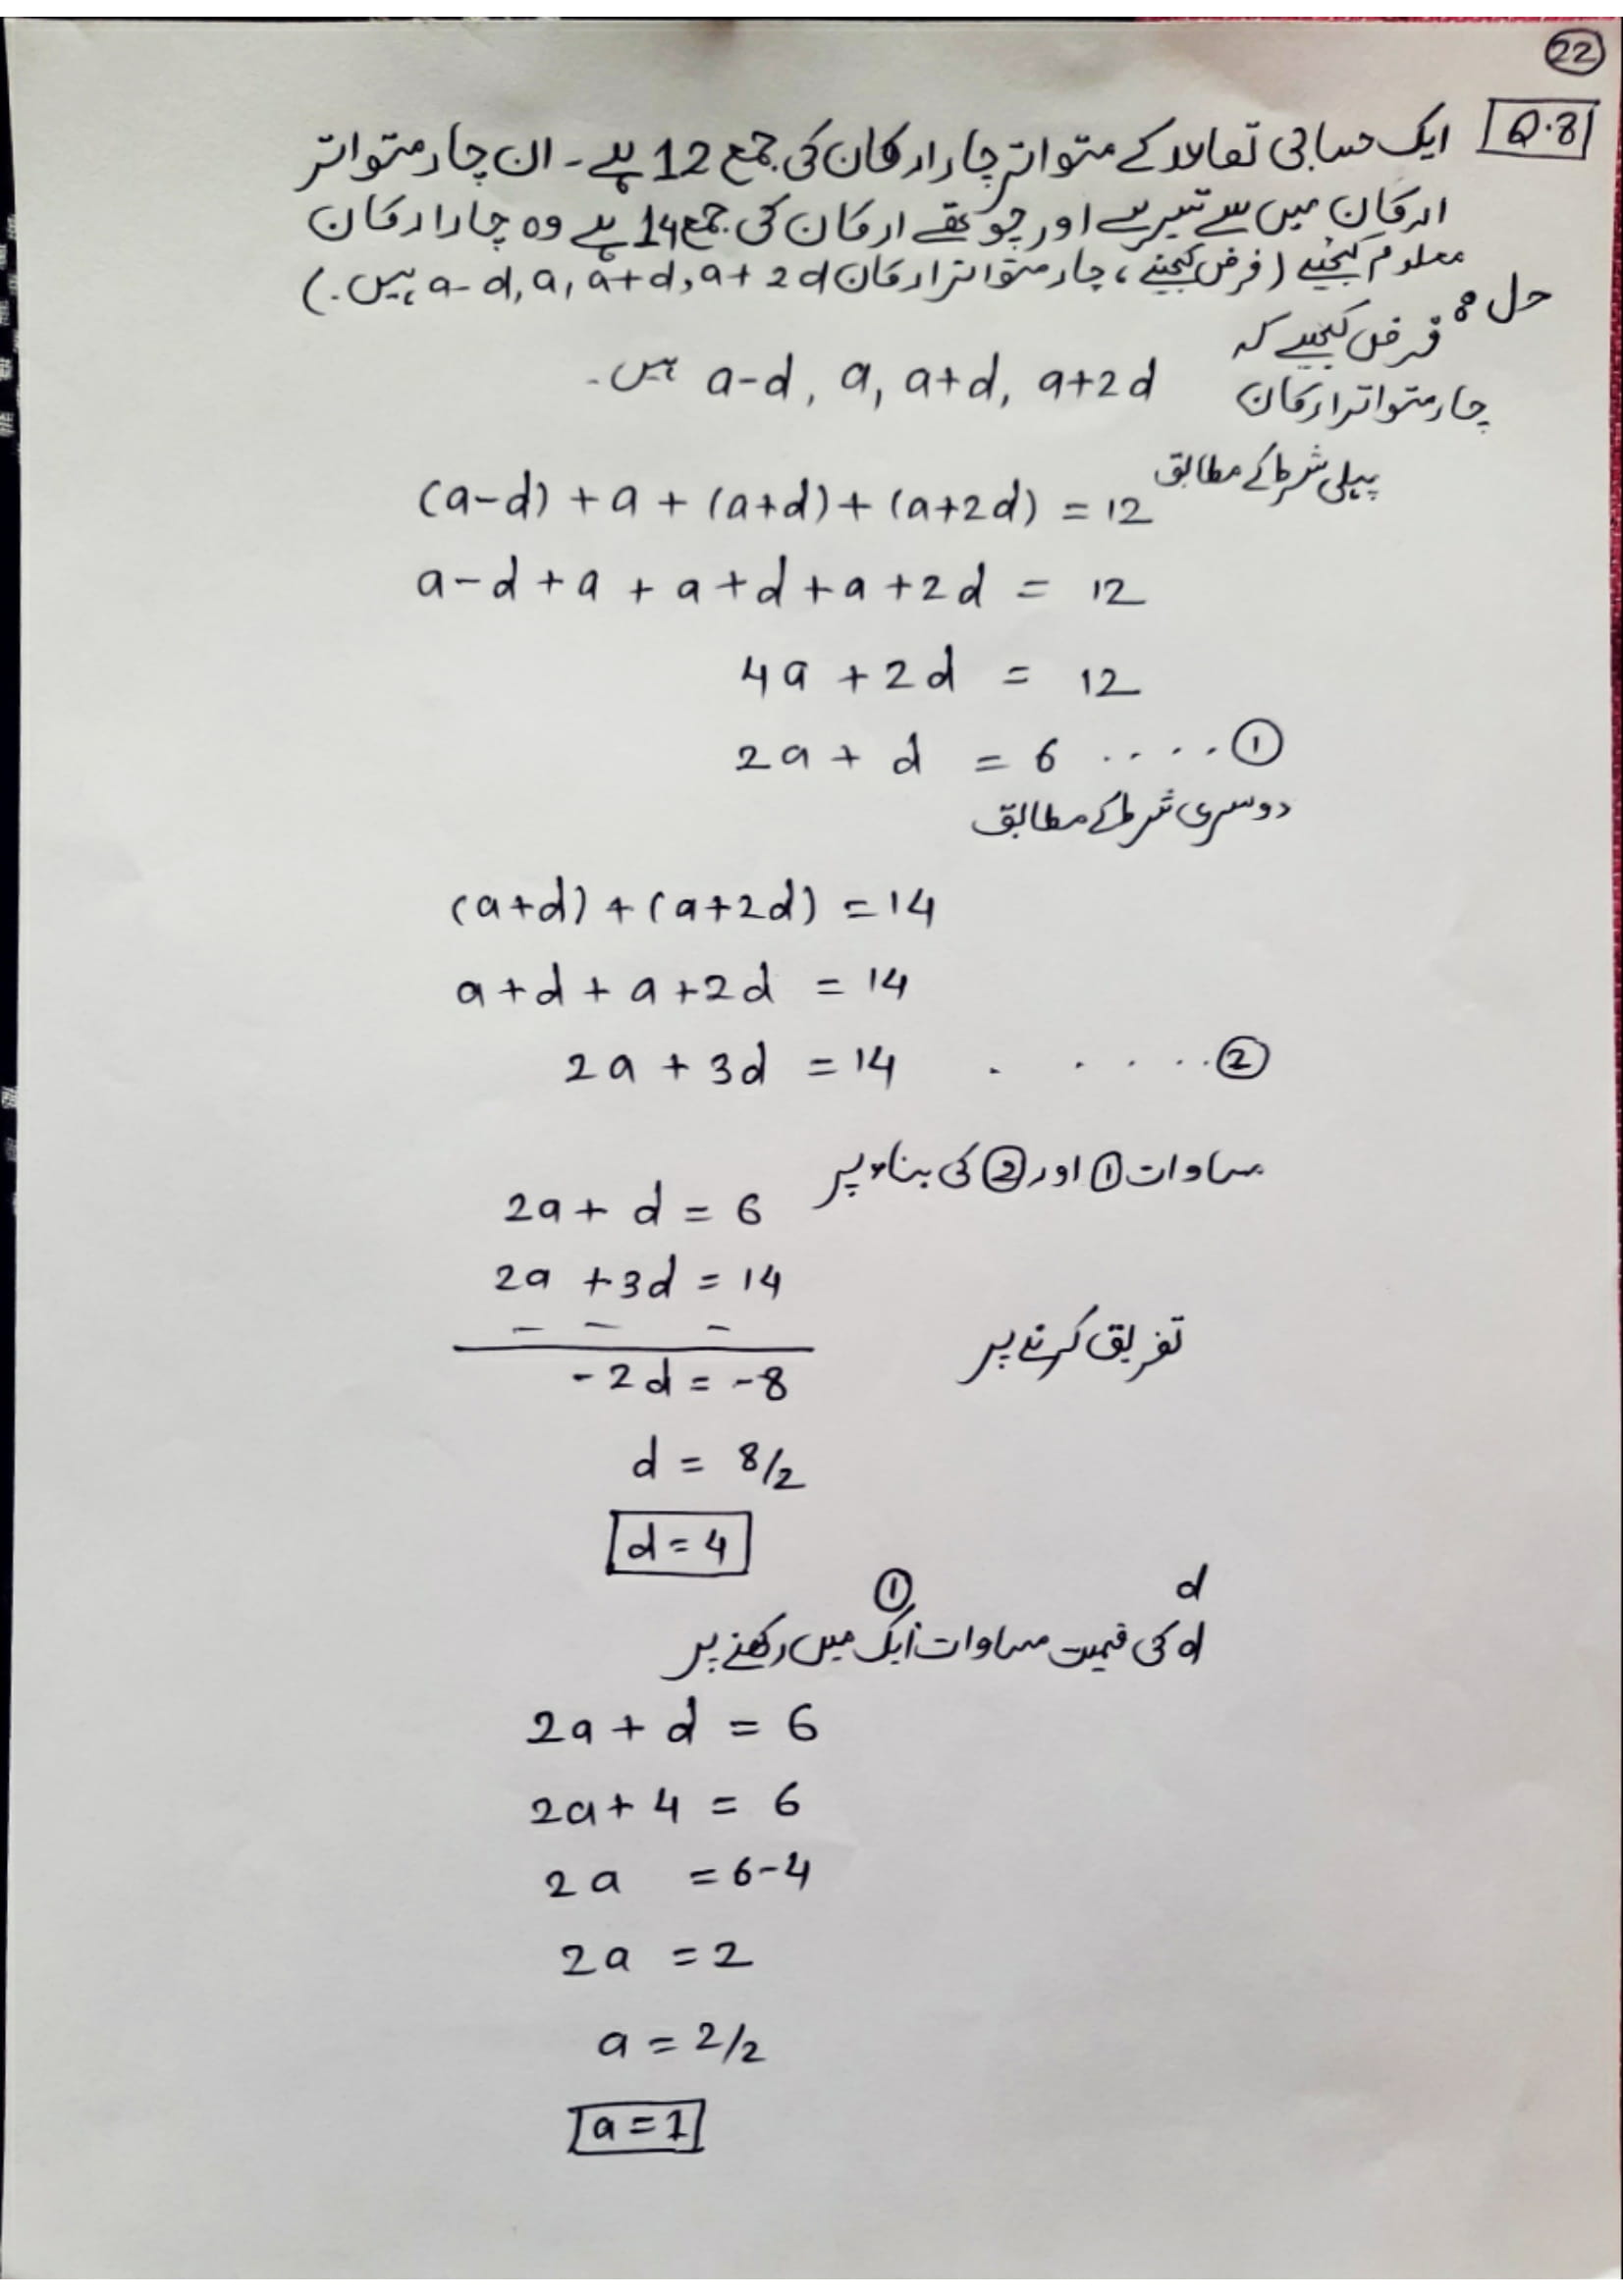 22
Q.8 ایک حسابی تصاعد کے متواتر چار ارکان کی جمع 12 ہے۔ ان چار متواتر
ارکان میں سے تیسرے اور چوتھے ارکان کی جمع 14 ہے وہ چار ارکان
معلوم کیجیے (فرض کیجئے، چار متواتر ارکان a-d, a, a+d, a+2d ہیں.)
حل :
فرض کیجیے کہ
چار متواتر ارکان a-d, a, a+d, a+2d ہیں۔
پہلی شرط کے مطابق
(a-d) + a + (a+d) + (a+2d) = 12
a-d + a + a + d + a + 2d = 12
4a + 2d = 12
2a + d = 6 ..... ①
دوسری شرط کے مطابق
(a+d) + (a+2d) = 14
a + d + a + 2d = 14
2a + 3d = 14 . . . . . . ②
مساوات ① اور ② کی بناء پر
2a + d = 6
2a + 3d = 14
− − −
تفریق کرنے پر
-2d = -8
d = 8/2
d = 4
d ①
d کی قیمت مساوات ایک میں رکھنے پر
2a + d = 6
2a + 4 = 6
2a = 6-4
2a = 2
a = 2/2
a = 1